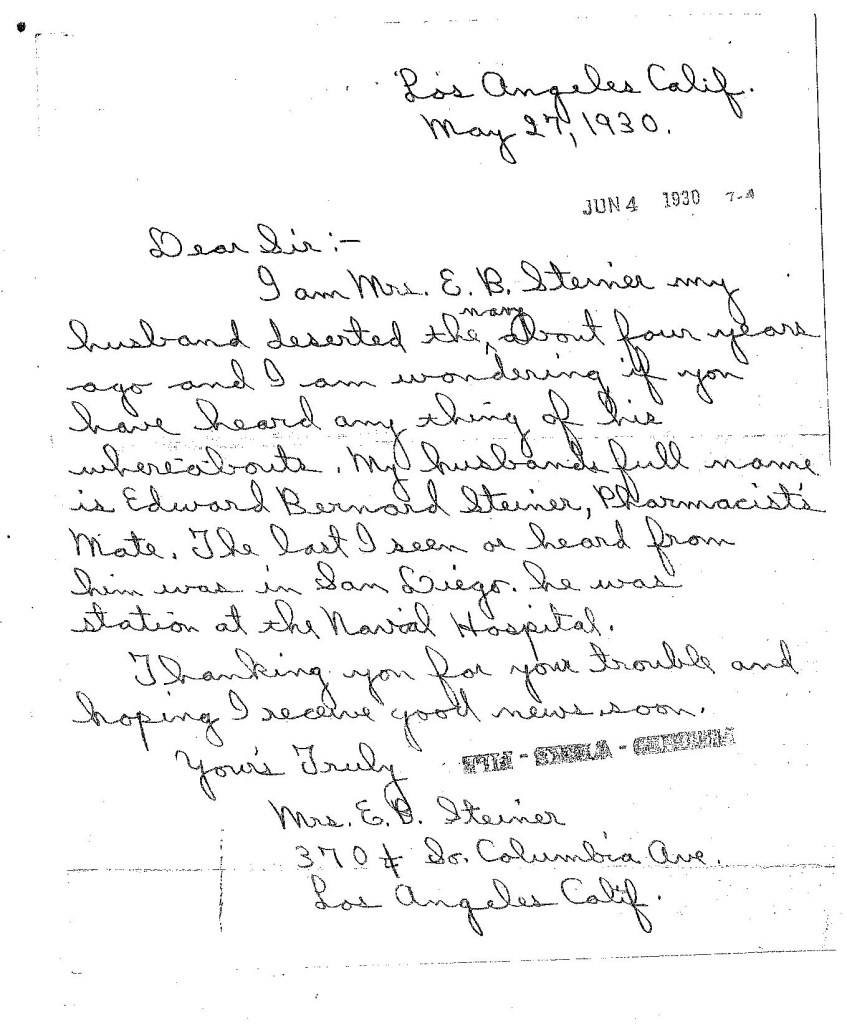 Los Angeles Calif.
May 27, 1930.
JUN 4 1930 7-4
Dear Sir:-
I am Mrs. E. B. Steiner my
navy
husband deserted the about four years
ago and I am wondering if you
have heard any thing of his
whereabouts. My husbands full name
is Edward Bernard Steiner, Pharmacist's
Mate. The last I seen or heard from
him was in San Diego. he was
station at the Naval Hospital.
Thanking you for your trouble and
hoping I receive good news soon.
Your's Truly
Mrs. E. B. Steiner
So. Columbia Ave.
Los Angeles Calif.